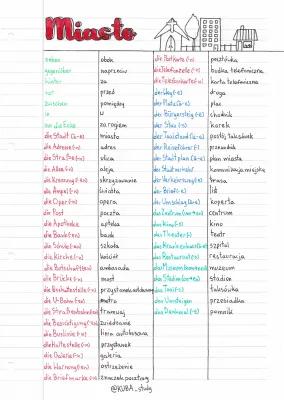 Miasto
neben obok
gegenüber naprzeciw
hinter za
vor przed
zwischen pomiędzy
in w
um die Ecke za rogiem
die Stadt (¨-e) miasto
die Adresse (-n) adres
die Straße (-n) ulica
die Allee (-n) aleja
die Kreuzung (-en) skrzyżowanie
die Ampel (-n) światła
die Oper (-n) opera
die Post poczta
die Apotheke apteka
die Bank (-en) bank
die Schule (-n) szkoła
die Kirche (-n) kościół
die Botschaft (-en) ambasada
die Brücke (-n) most
die Bushaltestelle (-n) przystanek autobusowy
die U-Bahn (-en) metro
die Straßenbahn (-en) tramwaj
die Besichtigung (-en) zwiedzanie
die Buslinie (-n) linia autobusowa
die Haltestelle (-n) przystanek
die Galerie (-n) galeria
die Warnung (-en) ostrzeżenie
die Briefmarke (-n) znaczek pocztowy
die Postkarte (-n) pocztówka
die Telefonzelle (-n) budka telefoniczna
die Telefonkarte (-n) karta telefoniczna
der Weg (-e) droga
der Platz (¨-e) plac
der Bürgersteig (-e) chodnik
der Stau (-s) korek
der Taxistand (¨-e) postój taksówek
der Reiseführer (-) przewodnik
der Stadtplan (¨-e) plan miasta
der Stadtverkehr komunikacja miejska
der Verkehrsweg (-e) trasa
der Brief (-e) list
der Umschlag (¨-e) koperta
das Zentrum centrum
das Kino (-s) kino
das Theater (-) teatr
das Krankenhaus szpital
das Restaurant (-s) restauracja
das Museum muzeum
das Stadion stadion
das Taxi (-s) taksówka
das Umsteigen przesiadka
das Denkmal pomnik
@KUBA_study